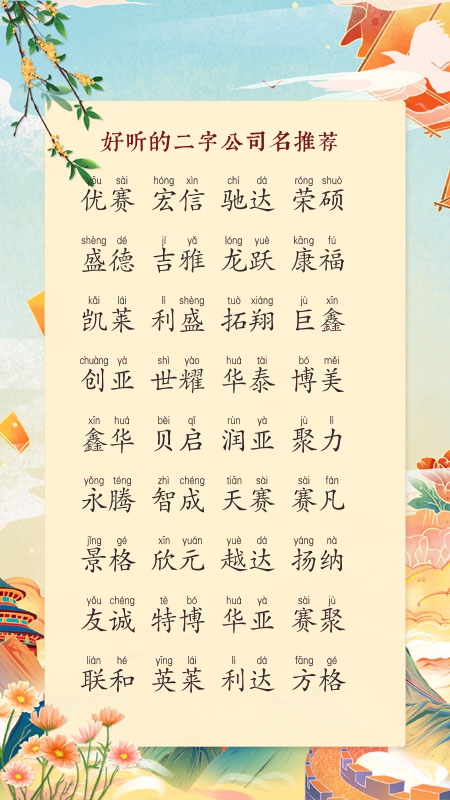 好听的二字公司名推荐
yōu sài hóng xìn chí dá róng shuò
优赛 宏信 驰达 荣硕
shèng dé jí yǎ lóng yuè kāng fú
盛德 吉雅 龙跃 康福
kǎi lái lì shèng tuò xiáng jù xīn
凯莱 利盛 拓翔 巨鑫
chuàng yà shì yào huá tài bó měi
创亚 世耀 华泰 博美
xīn huá bèi qǐ rùn yà jù lì
鑫华 贝启 润亚 聚力
yǒng téng zhì chéng tiān sài sài fán
永腾 智成 天赛 赛凡
jǐng gé xīn yuán yuè dá yáng nà
景格 欣元 越达 扬纳
yǒu chéng tè bó huá yà sài jù
友诚 特博 华亚 赛聚
lián hé yīng lái lì dá fāng gé
联和 英莱 利达 方格